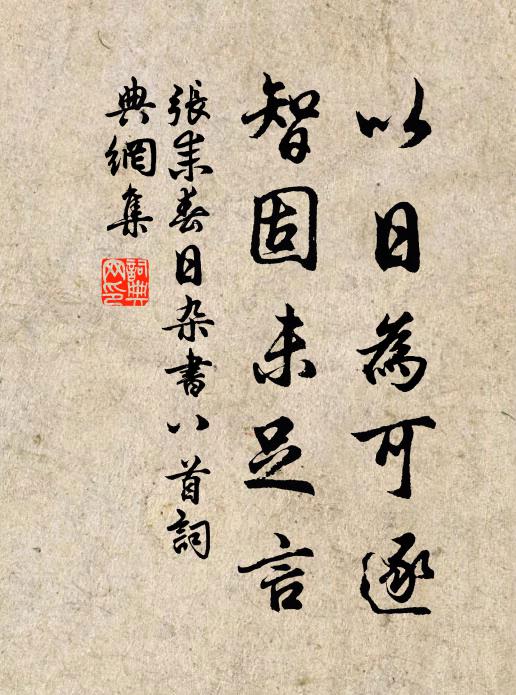 以日為可逐
智固未足言
張耒春日杂書八首詞
典網集
詞典
网印